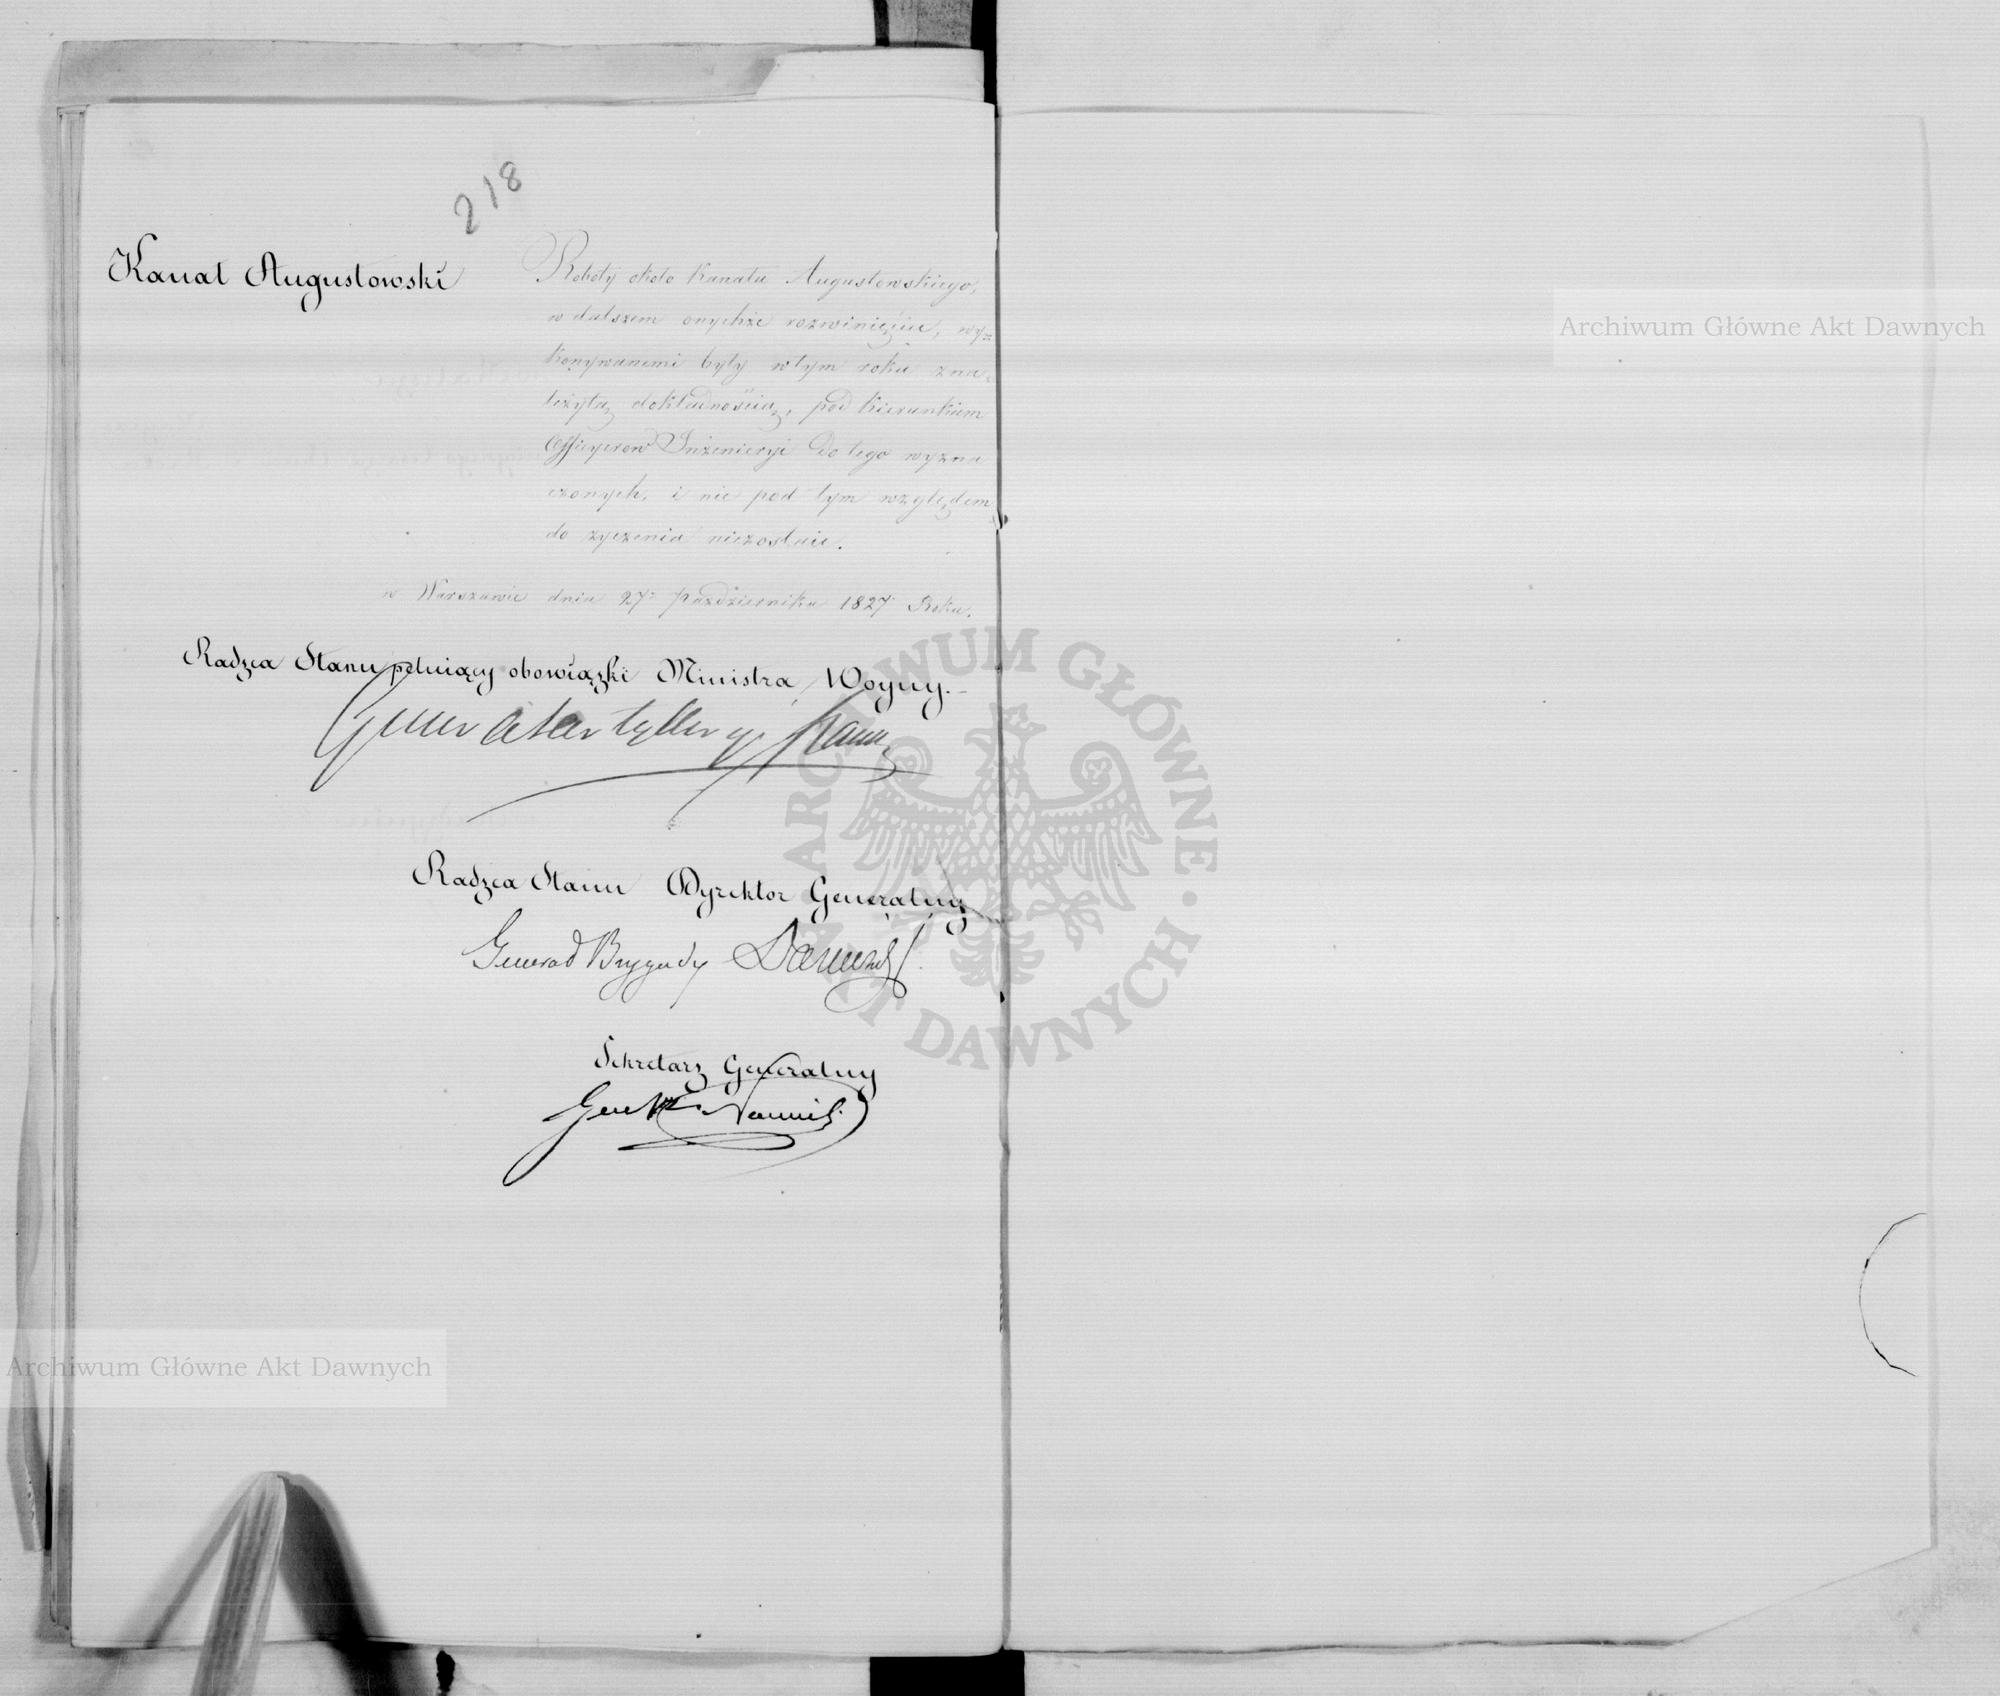 218
Kanał Augustowski
Roboty około Kanału Augustowskiego,
w dalszem onychże rozwinięciu, wy=
konywanemi były w tym roku zna=
leżytą dokładnością, pod kierunkiem
Officyerow Inżenieryi do tego wyzna
czonych, i nic pod tym względem
do życzenia niezostaie.
w Warszawie dnia 27= Października 1827 Roku.
Radzca Stanu pełniący obowiązki Ministra Woyny.-
Generał Artylleryi Hauke
Radzca Stanu Dyrektor Generalny
Generał Brygady
Sekretarz Generalny
Archiwum Główne Akt Dawnych
Archiwum Główne Akt Dawnych
ARCHIWUM GŁÓWNE · AKT DAWNYCH ·